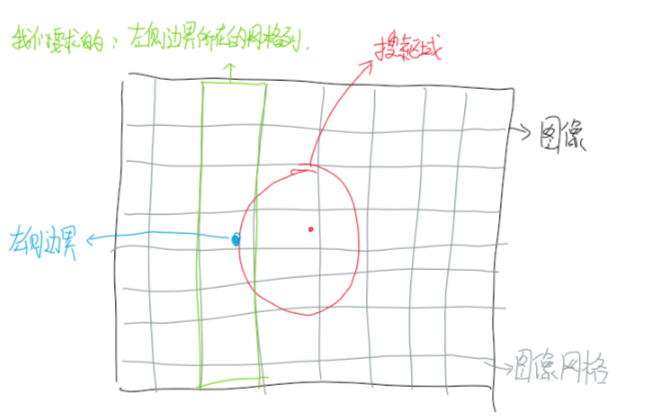 我们要求的：左侧边界所在的网格列.
搜索区域
图像
左侧边界
图像网格